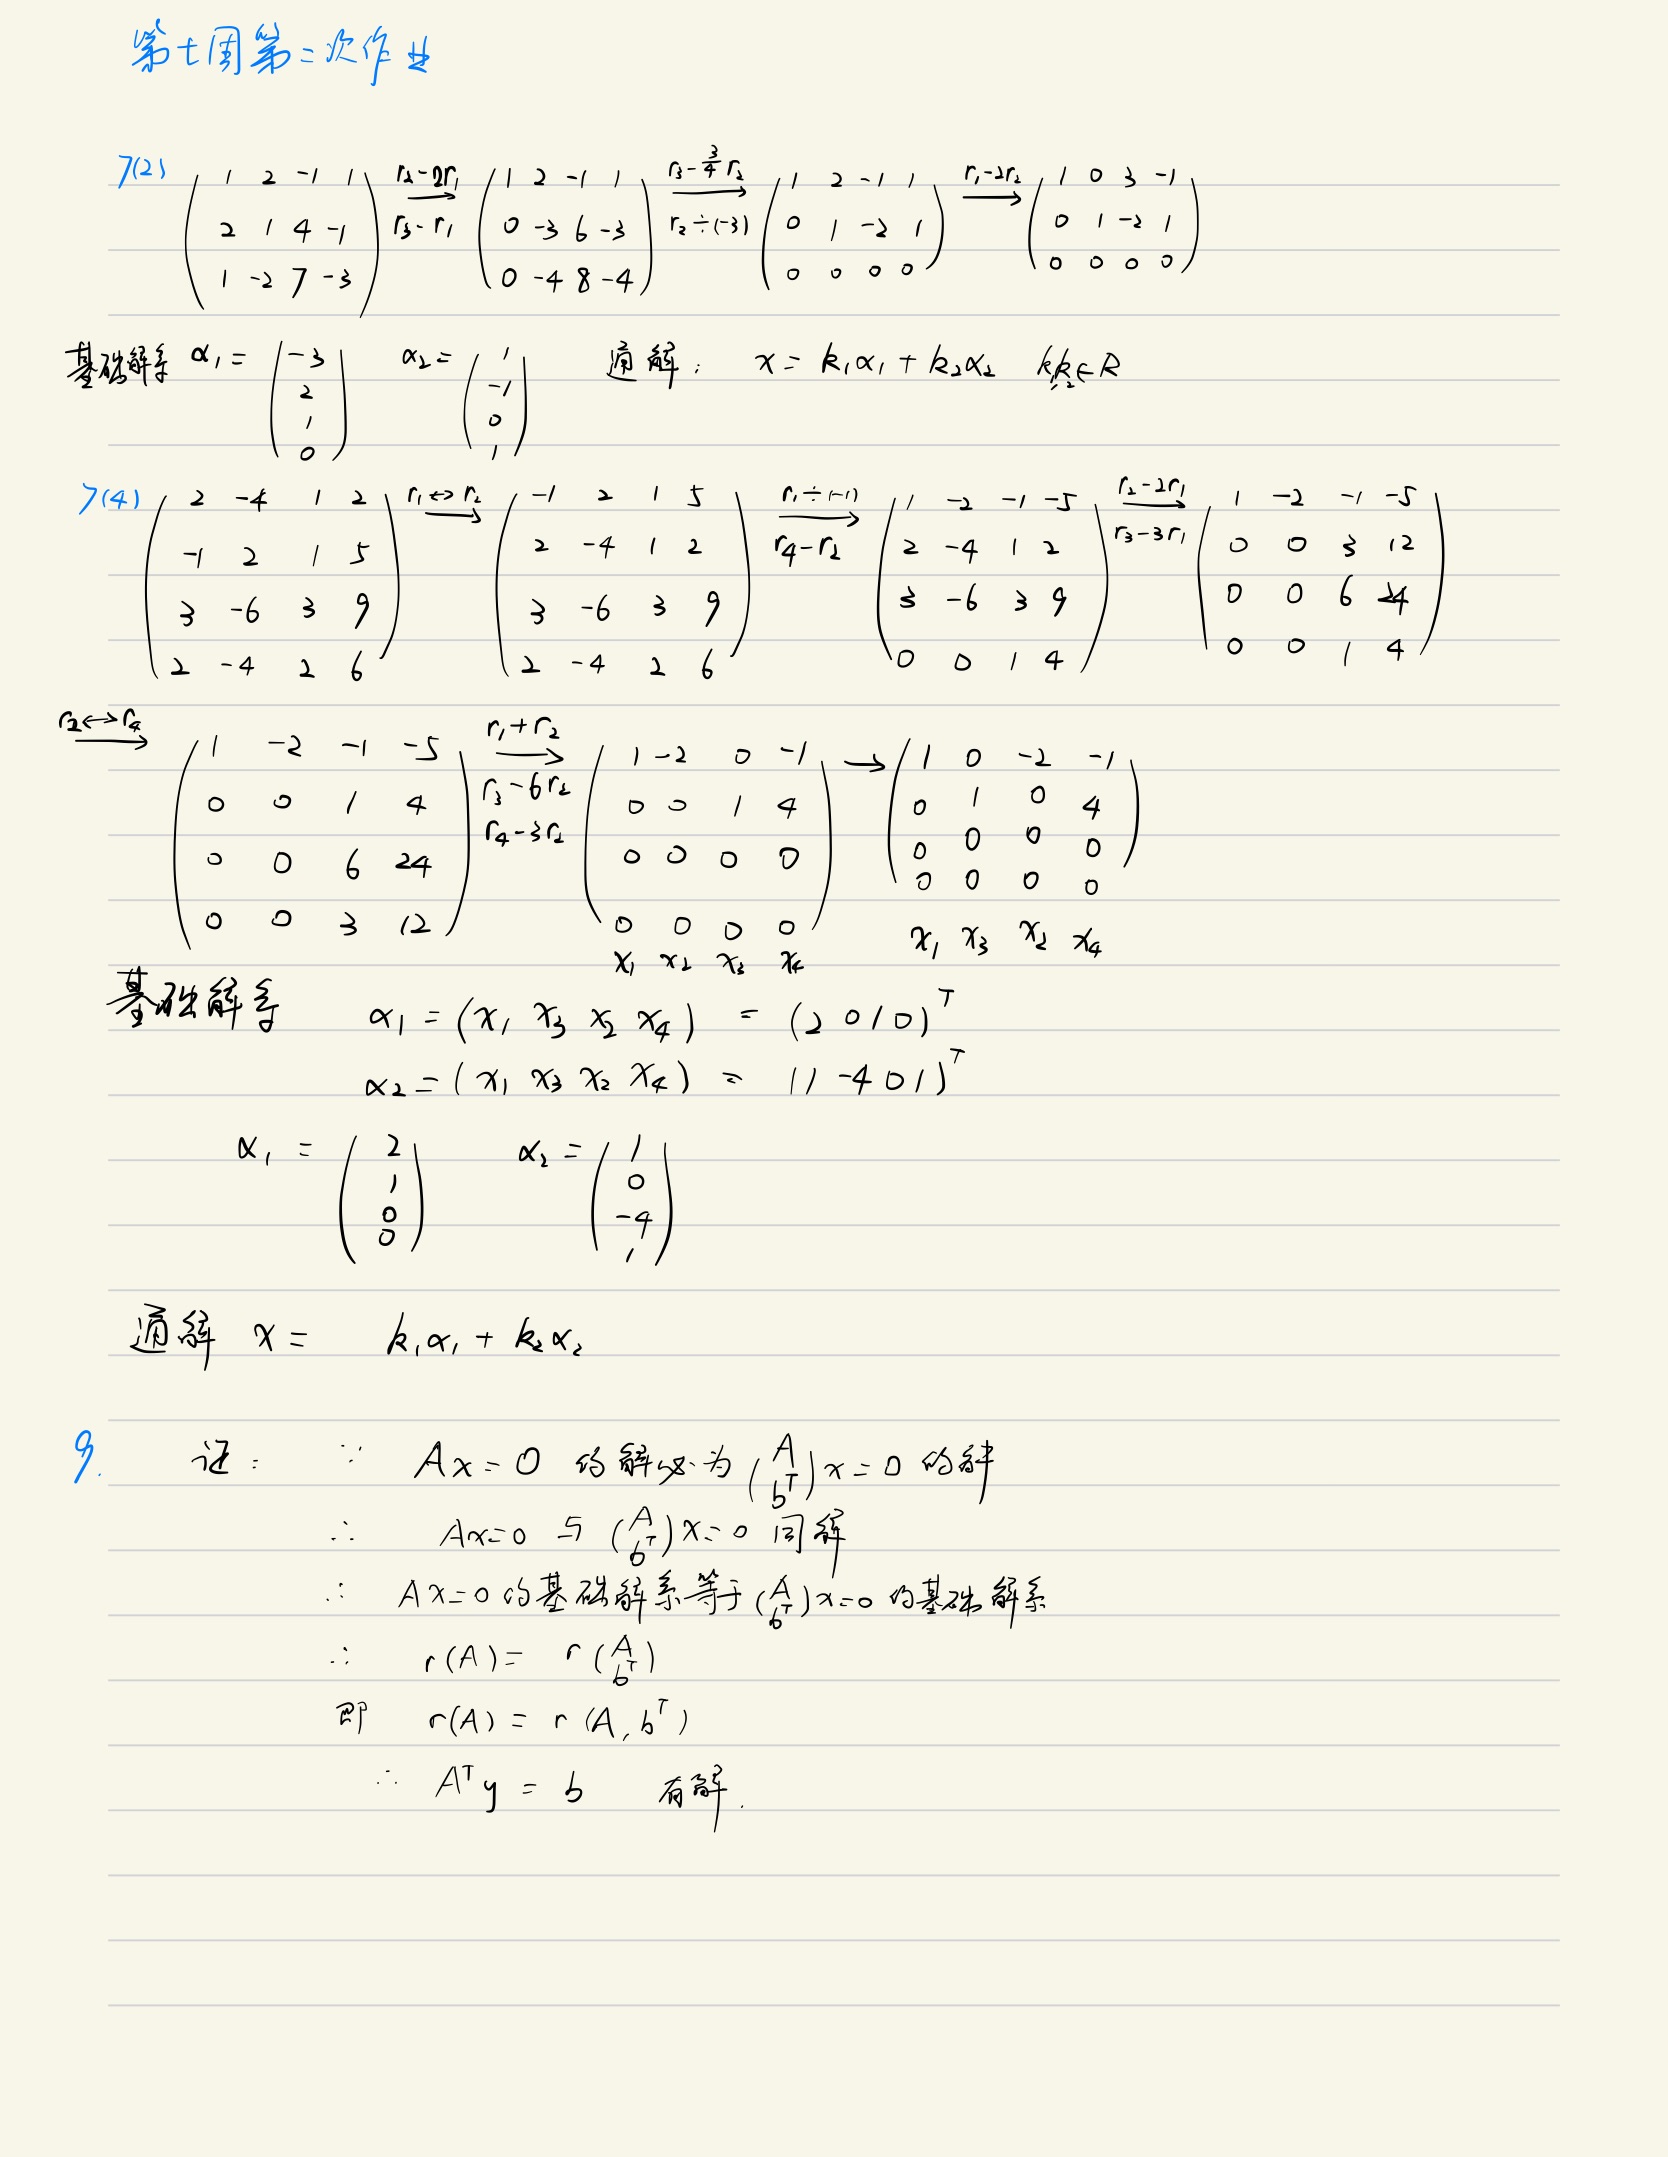 第七周第二次作业
7(2) (1 2 -1 1; 2 1 4 -1; 1 -2 7 -3) r₂-2r₁ r₃-r₁ → (1 2 -1 1; 0 -3 6 -3; 0 -4 8 -4) r₃-3/4r₂ r₂÷(-3) → (1 2 -1 1; 0 1 -2 1; 0 0 0 0) r₁-2r₂ → (1 0 3 -1; 0 1 -2 1; 0 0 0 0)
基础解系 α₁= (-3; 2; 1; 0) α₂= (1; -1; 0; 1) 通解: x = k₁α₁ + k₂α₂ k₁,k₂∈R
7(4) (2 -4 1 2; -1 2 1 5; 3 -6 3 9; 2 -4 2 6) r₁↔r₂ → (-1 2 1 5; 2 -4 1 2; 3 -6 3 9; 2 -4 2 6) r₁÷(-1) r₄-r₂ → (1 -2 -1 -5; 2 -4 1 2; 3 -6 3 9; 0 0 1 4) r₂-2r₁ r₃-3r₁ → (1 -2 -1 -5; 0 0 3 12; 0 0 6 24; 0 0 1 4)
r₂↔r₄ → (1 -2 -1 -5; 0 0 1 4; 0 0 6 24; 0 0 3 12) r₁+r₂ r₃-6r₂ r₄-3r₂ → (1 -2 0 -1; 0 0 1 4; 0 0 0 0; 0 0 0 0) → (1 0 -2 -1; 0 1 0 4; 0 0 0 0; 0 0 0 0)
x₁ x₂ x₃ x₄ x₁ x₃ x₂ x₄
基础解系 α₁ = (x₁ x₃ x₂ x₄) = (2 0 1 0)ᵀ
α₂ = (x₁ x₃ x₂ x₄) = (1 -4 0 1)ᵀ
α₁ = (2; 1; 0; 0) α₂ = (1; 0; -4; 1)
通解 x = k₁α₁ + k₂α₂
9. 证: ∵ Ax=0 的解必为 (A; bᵀ)x=0 的解
∴ Ax=0 与 (A; bᵀ)x=0 同解
∴ Ax=0 的基础解系等于 (A; bᵀ)x=0 的基础解系
∴ r(A) = r(A; bᵀ)
即 r(A) = r(A, bᵀ)
∴ Aᵀy = b 有解.